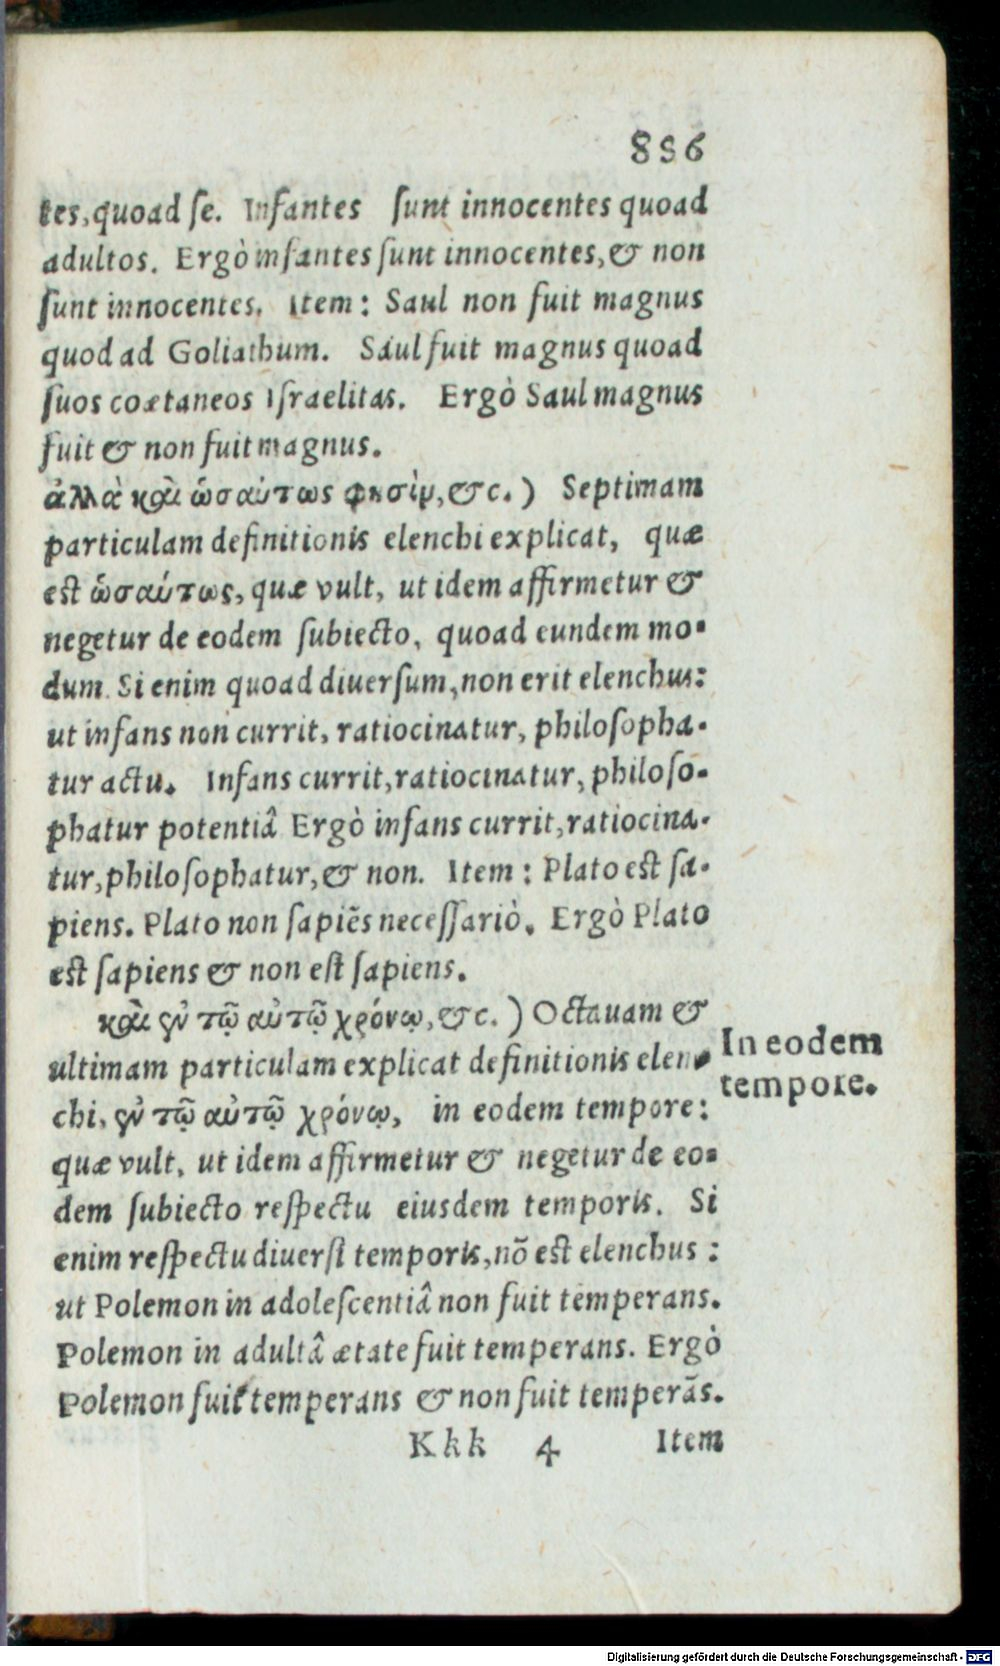 836
tes, quoad ſe. Infantes ſunt innocentes quoad
adultos. Ergò infantes ſunt innocentes, & non
ſunt innocentes. Item: Saul non fuit magnus
quod ad Goliathum. Saul fuit magnus quoad
ſuos coætaneos Iſraelitas. Ergò Saul magnus
fuit & non fuit magnus.
ἀλλὰ καὶ ὡσαύτως φησὶν, &c.) Septimam
particulam definitionis elenchi explicat, quæ
est ὡσαύτως, quæ vult, ut idem affirmetur &
negetur de eodem ſubiecto, quoad eundem mo-
dum. Si enim quoad diuerſum, non erit elenchus:
ut infans non currit, ratiocinatur, philoſopha-
tur actu. Infans currit, ratiocinatur, philoſo-
phatur potentiâ Ergò infans currit, ratiocina-
tur, philoſophatur, & non. Item: Plato est ſa-
piens. Plato non ſapiẽs neceſſariò. Ergò Plato
est ſapiens & non eſt ſapiens.
καὶ ἐν τῷ αὐτῷ χρόνῳ, &c.) Octauam &
ultimam particulam explicat definitionis elen-
chi, ἐν τῷ αὐτῷ χρόνῳ, in eodem tempore:
quæ vult, ut idem affirmetur & negetur de eo-
dem ſubiecto reſpectu eiusdem temporis. Si
enim reſpectu diuerſi temporis, nõ est elenchus:
ut Polemon in adoleſcentiâ non fuit temperans.
Polemon in adultâ ætate fuit temperans. Ergò
Polemon fuit temperans & non fuit temperãs.
In eodem
tempore.
Kkk 4 Item
Digitalisierung gefördert durch die Deutsche Forschungsgemeinschaft - DFG